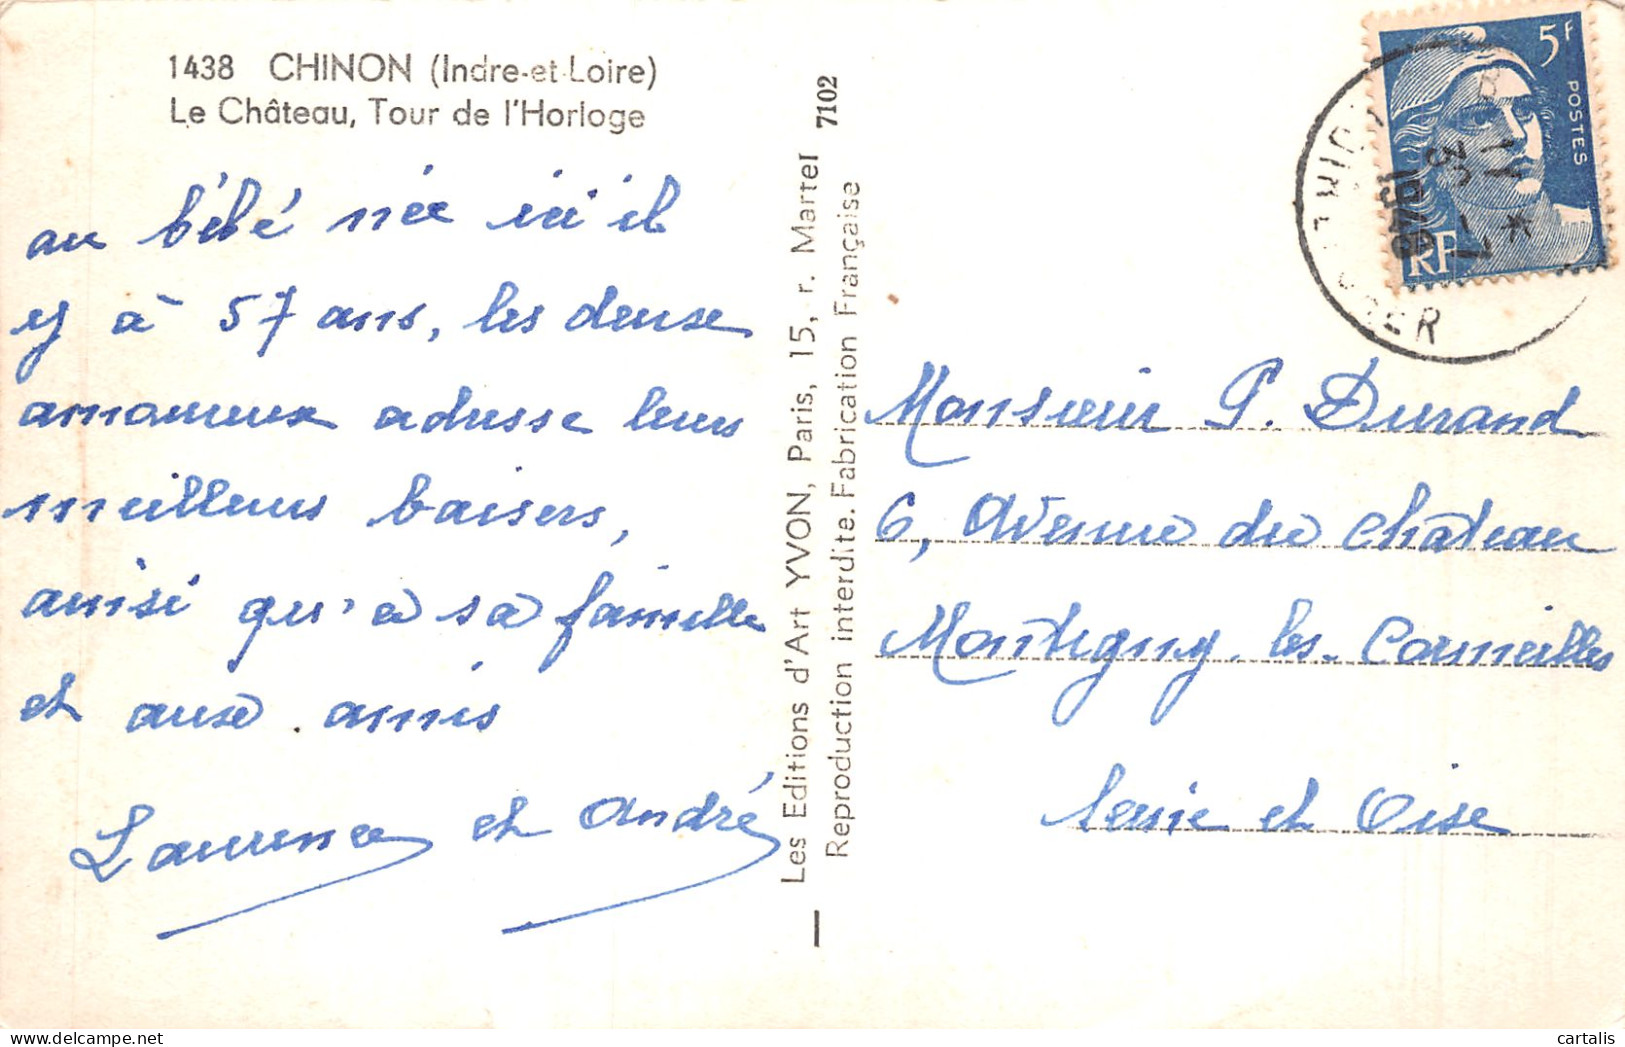 1438 CHINON (Indre-et-Loire)
Le Château, Tour de l'Horloge
au bébé née ici il
y à 57 ans, les deux
amoureux adresse leurs
meilleurs baisers,
ainsi qu'a sa famille
et aux amis
Laurence et André
Les Editions d'Art YVON, Paris, 15, r. Martel
Reproduction interdite. Fabrication Française
7102
5F
POSTES
RF
1949
Monsieur P. Durand
6, Avenue du Château
Montigny les Cormeilles
Seine et Oise
cartalis